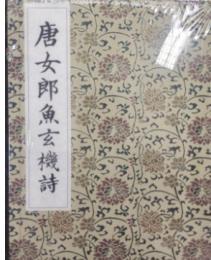 唐女郎魚玄機詩